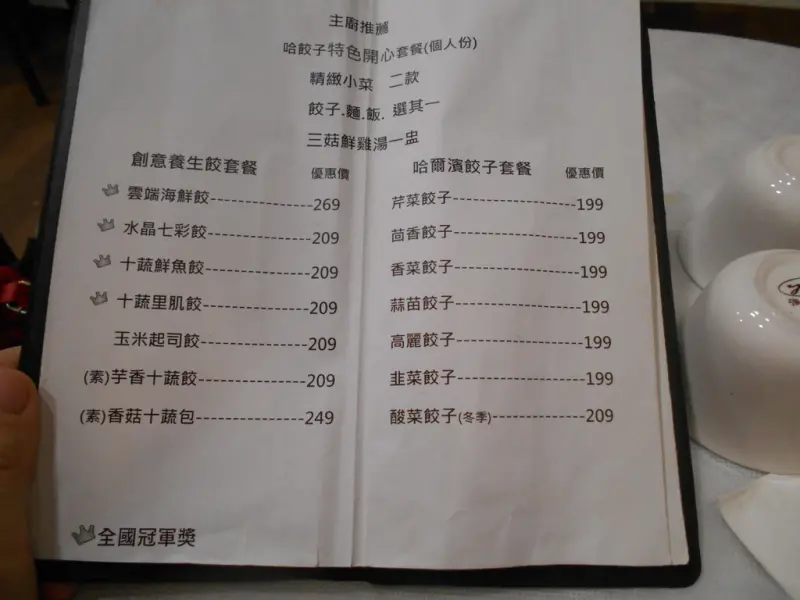 主廚推薦
哈餃子特色開心套餐(個人份)
精緻小菜 二款
餃子.麵.飯. 選其一
三菇鮮雞湯一盅
創意養生餃套餐 優惠價
雲端海鮮餃-------------269
水晶七彩餃-------------209
十蔬鮮魚餃-------------209
十蔬里肌餃-------------209
玉米起司餃-------------209
(素)芋香十蔬餃-------------209
(素)香菇十蔬包-------------249
全國冠軍獎
哈爾濱餃子套餐 優惠價
芹菜餃子---------------199
茴香餃子---------------199
香菜餃子---------------199
蒜苗餃子---------------199
高麗餃子---------------199
韭菜餃子---------------199
酸菜餃子(冬季)-------------209